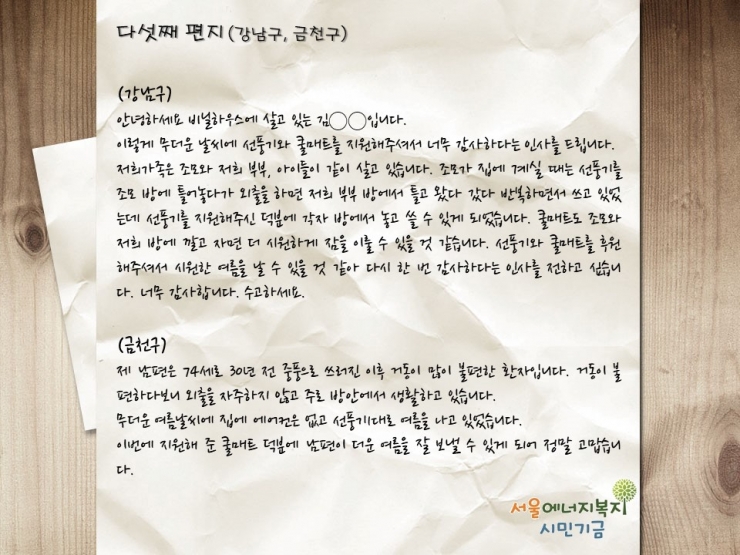 다섯째 편지(강남구, 금천구)
(강남구)
안녕하세요 비닐하우스에 살고 있는 김○○입니다.
이렇게 무더운 날씨에 선풍기와 쿨매트를 지원해주셔서 너무 감사하다는 인사를 드립니다.
저희가족은 조모와 저희 부부, 아이들이 같이 살고 있습니다. 조모가 집에 계실 때는 선풍기를
조모 방에 틀어놓다가 외출을 하면 저희 부부 방에서 틀고 왔다 갔다 반복하면서 쓰고 있었
는데 선풍기를 지원해주신 덕분에 각자 방에서 놓고 쓸 수 있게 되었습니다. 쿨매트도 조모와
저희 방에 깔고 자면 더 시원하게 잠을 이룰 수 있을 것 같습니다. 선풍기와 쿨매트를 후원
해주셔서 시원한 여름을 날 수 있을 것 같아 다시 한 번 감사하다는 인사를 전하고 싶습니
다. 너무 감사합니다. 수고하세요.
(금천구)
제 남편은 74세로 30년 전 중풍으로 쓰러진 이후 거동이 많이 불편한 환자입니다. 거동이 불
편하다보니 외출을 자주하지 않고 주로 방안에서 생활하고 있습니다.
무더운 여름날씨에 집에 에어컨은 없고 선풍기대로 여름을 나고 있었습니다.
이번에 지원해 준 쿨매트 덕분에 남편이 더운 여름을 잘 보낼 수 있게 되어 정말 고맙습니
다.
서울에너지복지
시민기금